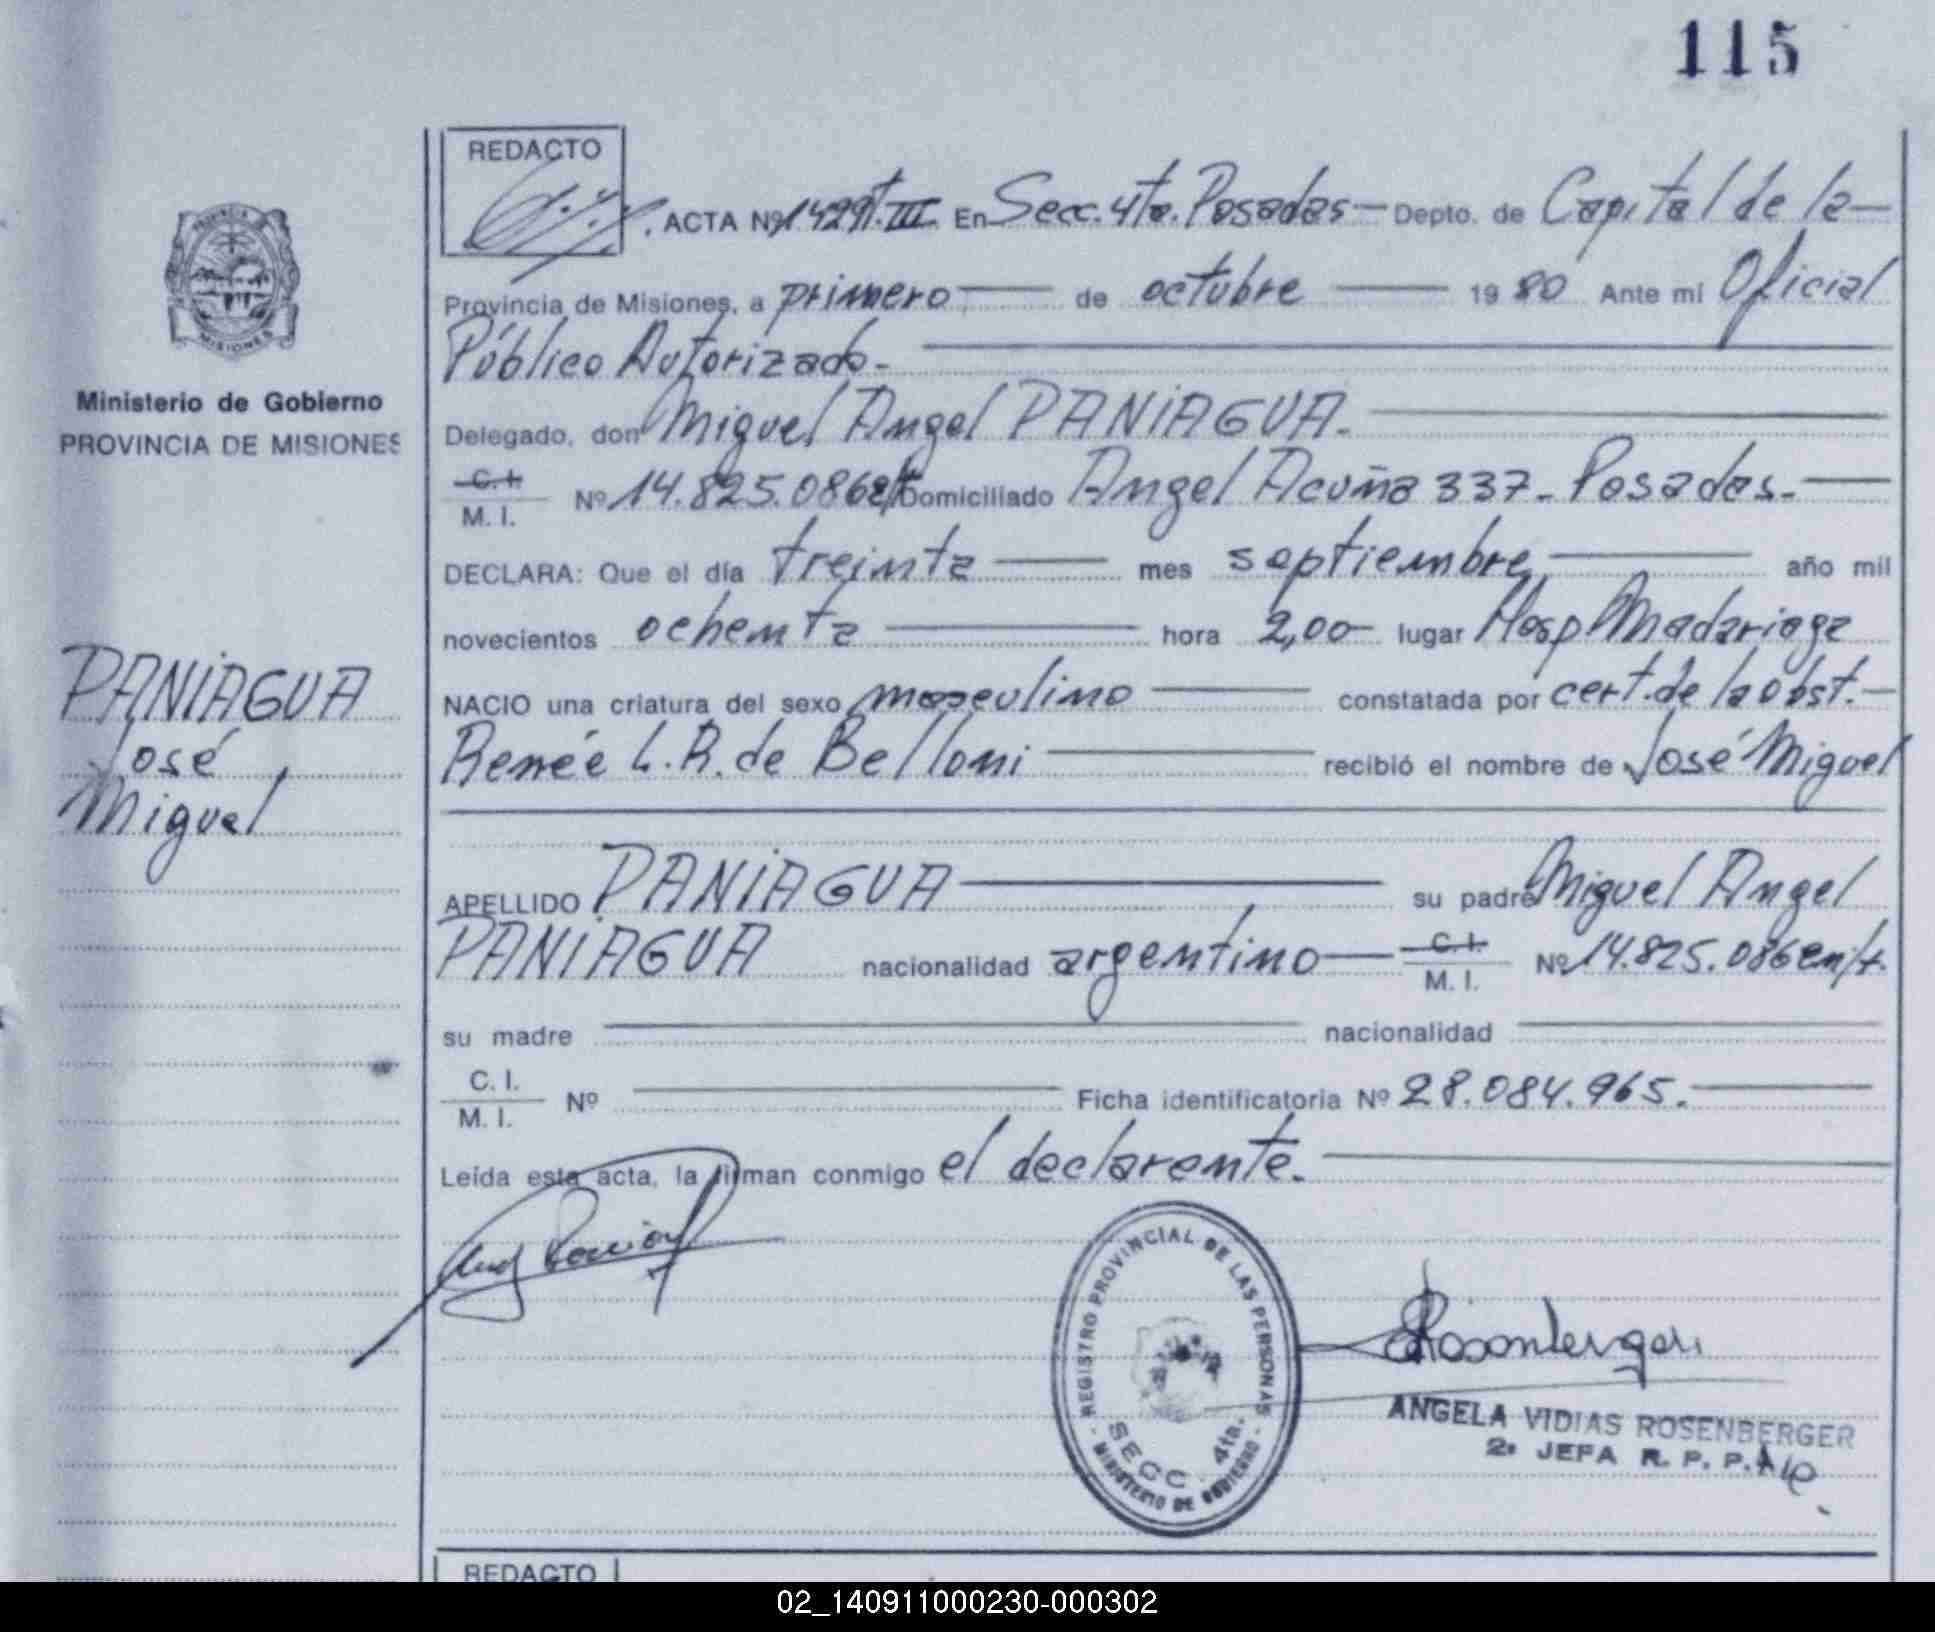 115
REDACTO
ACTA Nº 1429 T. III En Secc. 4ta. Posadas Depto. de Capital de la
Provincia de Misiones, a primero de octubre 19 80 Ante mi Oficial
Público Autorizado.
Delegado, don Miguel Angel PANIAGUA.
C. I.
M. I. Nº 14.825.086 e/t Domiciliado Angel Acuña 337 - Posadas.
DECLARA: Que el día treinta mes septiembre año mil
novecientos ochenta hora 2,00 lugar Hosp Madariaga
NACIO una criatura del sexo masculino constatada por cert. de la obst.
Renée L. R. de Belloni recibió el nombre de José Miguel
APELLIDO PANIAGUA su padre Miguel Angel
PANIAGUA nacionalidad argentino C. I. Nº 14.825.086 en/t.
M. I.
su madre nacionalidad
C. I.
M. I. Nº Ficha identificatoria Nº 28.084.965.
Leída esta acta, la firman conmigo el declarante.
PROVINCIA
MISIONES
Ministerio de Gobierno
PROVINCIA DE MISIONES
PANIAGUA
José
Miguel
REGISTRO PROVINCIAL DE LAS PERSONAS
SECC. 4ta.
MINISTERIO DE GOBIERNO
Rosenberger
ANGELA VIDIAS ROSENBERGER
2ª JEFA R. P. P.
REDACTO
02_140911000230-000302